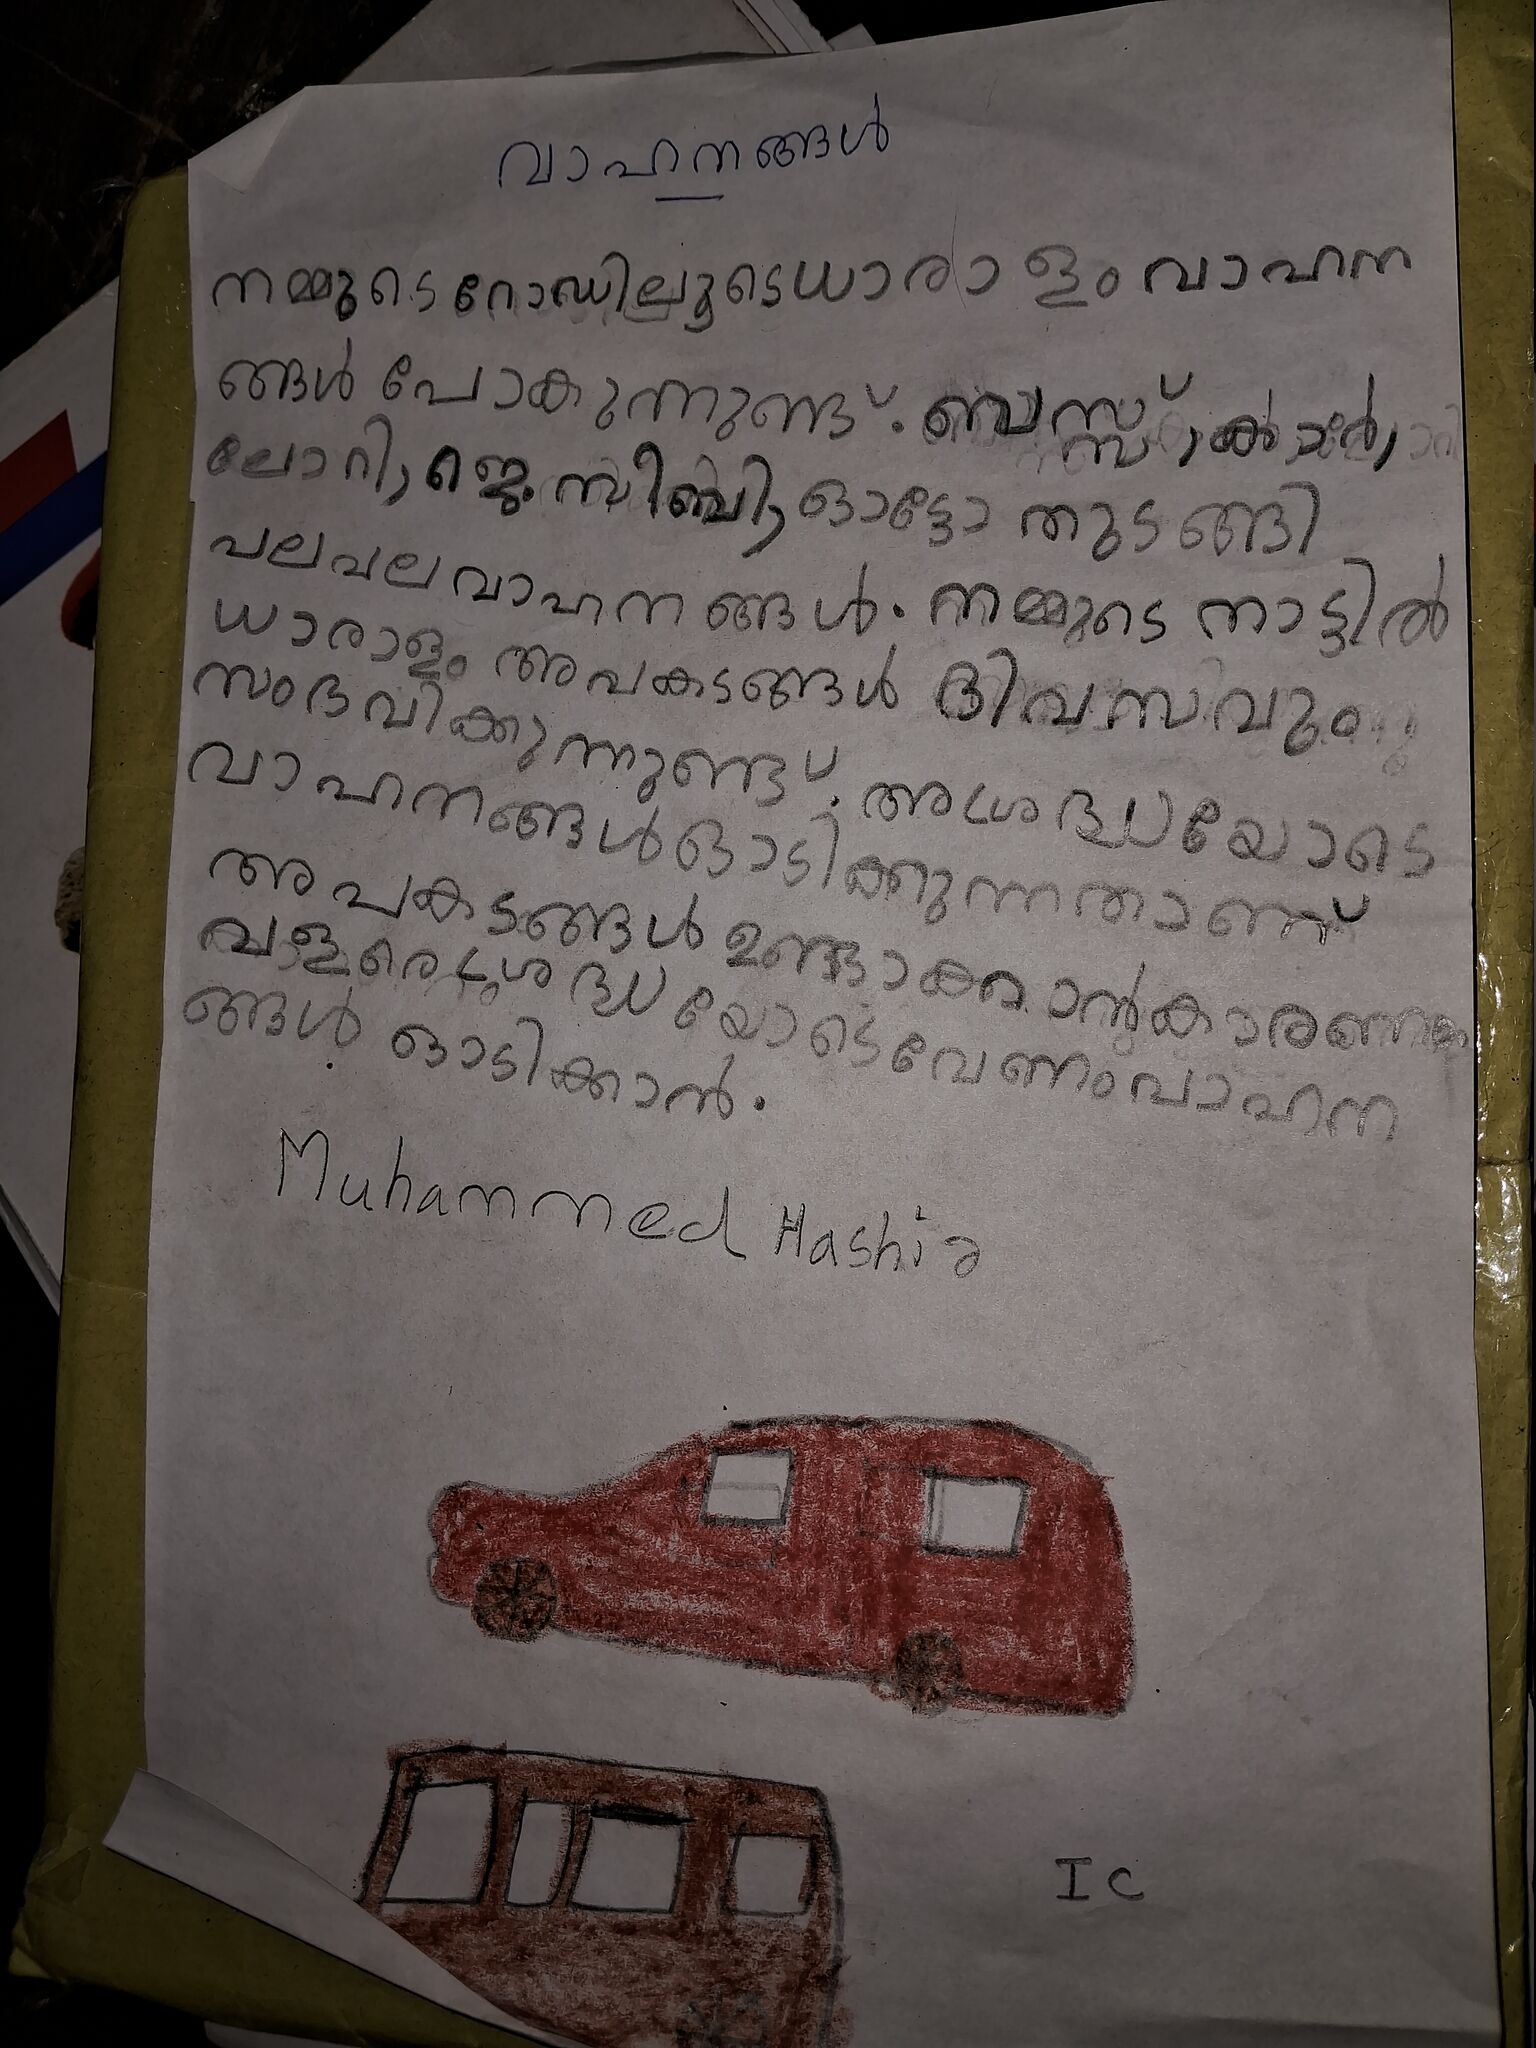 വാഹനങ്ങൾ
നമ്മുടെ റോഡിലൂടെ ധാരാളം വാഹന
ങ്ങൾ പോകുന്നുണ്ട്. ബസ്സ്, കാർ,
ലോറി, ജെസീബി, ഓട്ടോ തുടങ്ങി
പലപല വാഹനങ്ങൾ. നമ്മുടെ നാട്ടിൽ
ധാരാളം അപകടങ്ങൾ ദിവസവും
സംഭവിക്കുന്നുണ്ട്. അശ്രദ്ധയോടെ
വാഹനങ്ങൾ ഓടിക്കുന്നതാണ്
അപകടങ്ങൾ ഉണ്ടാകാൻ കാരണം
വളരെ ശ്രദ്ധയോടെ വേണം വാഹന
ങ്ങൾ ഓടിക്കാൻ.
Muhammed Hashir
I C